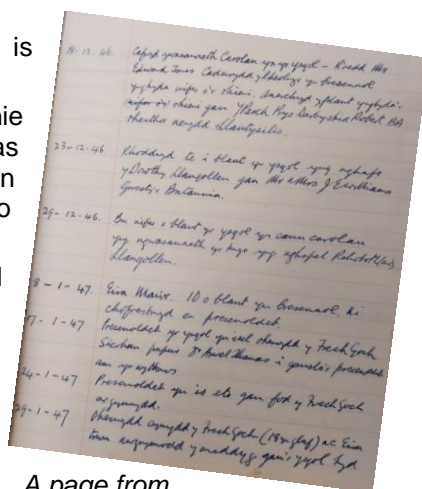 is
nie
as
n
o
18-12-46. Cafwyd gwasanaeth Carolau yn yr ysgol - Roedd Mr
Edward Jones Cadeirydd y Rheolwyr yn bresennol
ynghyda nifer o'r rhieni. y plant ynghyda
nifer o'r rhieni gan y Parch Robert BA
neuadd Llantysilio.
23-12-46. Rhoddwyd te i blant yr ysgol yng nghafe
y Dorothy Llangollen gan Mr a Mrs J
Gwesty'r Britannia.
29-12-46. Bu nifer o blant yr ysgol yn canu carolau
yng ngwasanaeth yr hwyr yng nghapel Rehoboth
Llangollen.
8-1-47. Eira Mawr. 10 o blant yn bresennol. Ni
chofrestrwyd eu presenoldeb.
17-1-47 Presenoldeb yr ysgol yn isel oherwydd y Frech Goch
papur Dr i presenoldeb
am yr wythnos
24-1-47 Presenoldeb yn is eto gan fod y Frech Goch
ar gynnydd.
29-1-47 Oherwydd cynnydd y Frech Goch (18 yn glaf) ac Eira
trwm y meddyg gau'r ysgol hyd
A page from